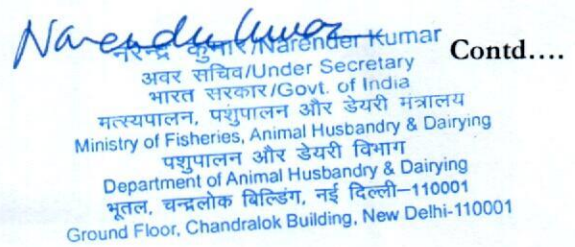 Narender Kumar
नरेन्द्र कुमार/Narender Kumar
Contd....
अवर सचिव/Under Secretary
भारत सरकार/Govt. of India
मत्स्यपालन, पशुपालन और डेयरी मंत्रालय
Ministry of Fisheries, Animal Husbandry & Dairying
पशुपालन और डेयरी विभाग
Department of Animal Husbandry & Dairying
भूतल, चन्द्रलोक बिल्डिंग, नई दिल्ली–110001
Ground Floor, Chandralok Building, New Delhi-110001